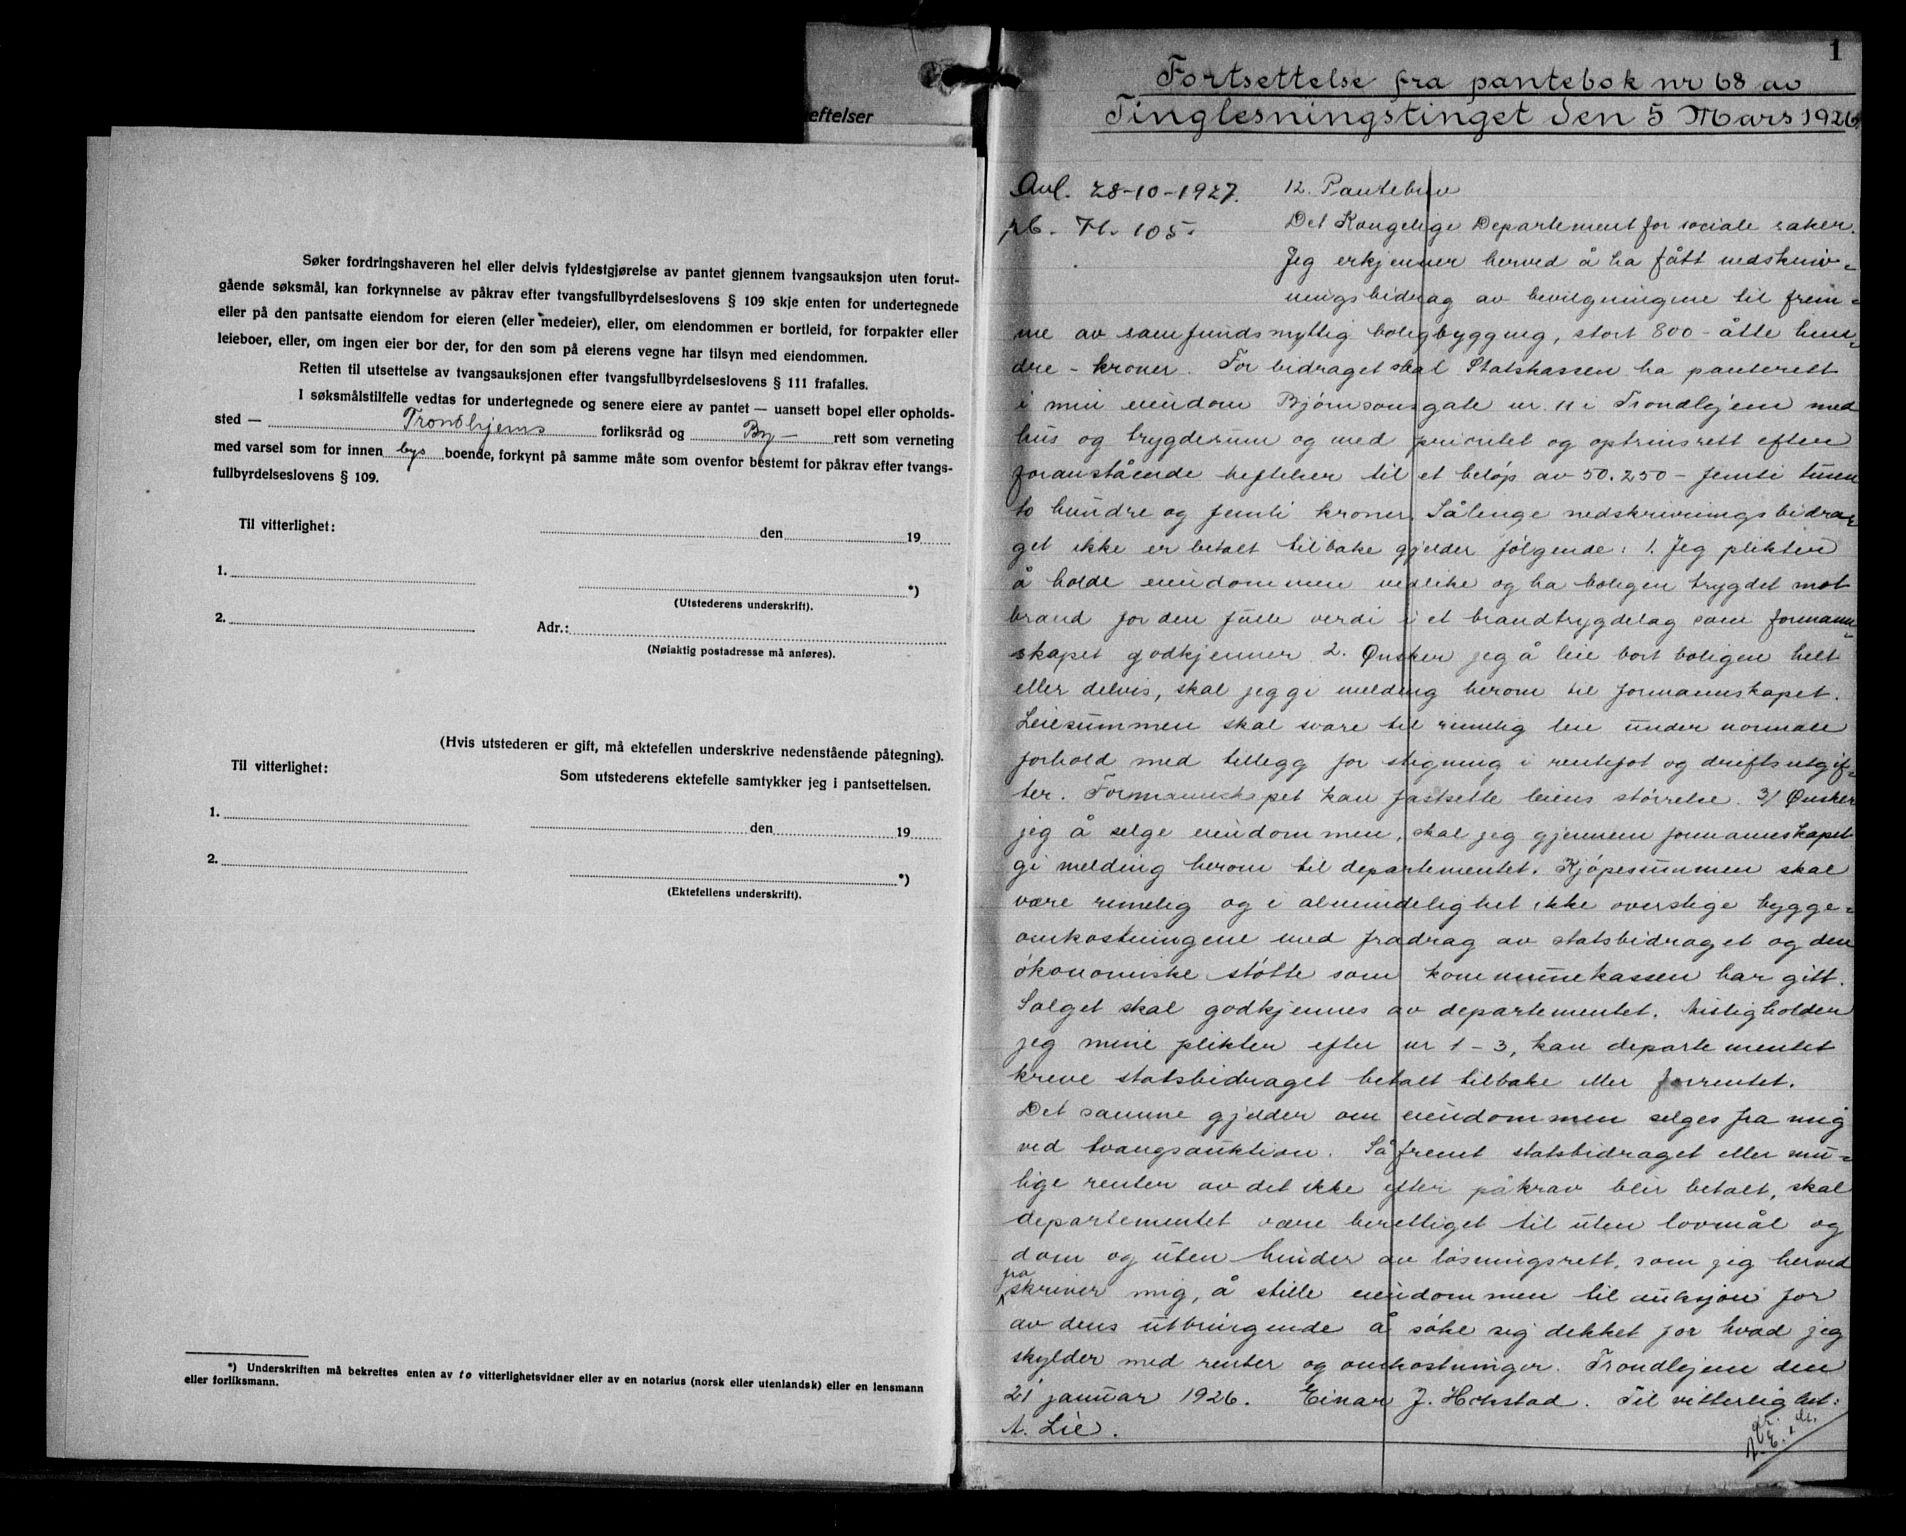 eftelser
Søker fordringshaveren hel eller delvis fyldestgjørelse av pantet gjennem tvangsauksjon uten forut-
gående søksmål, kan forkynnelse av påkrav efter tvangsfullbyrdelseslovens § 109 skje enten for undertegnede
eller på den pantsatte eiendom for eieren (eller medeier), eller, om eiendommen er bortleid, for forpakter eller
leieboer, eller, om ingen eier bor der, for den som på eierens vegne har tilsyn med eiendommen.
Retten til utsettelse av tvangsauksjonen efter tvangsfullbyrdelseslovens § 111 frafalles.
I søksmålstilfelle vedtas for undertegnede og senere eiere av pantet — uansett bopel eller opholds-
sted — Trondhjems forliksråd og By- rett som verneting
med varsel som for innen bys boende, forkynt på samme måte som ovenfor bestemt for påkrav efter tvangs-
fullbyrdelseslovens § 109.
Til vitterlighet:
den 19
1. *)
(Utstederens underskrift).
2. Adr.:
(Nøiaktig postadresse må anføres).
(Hvis utstederen er gift, må ektefellen underskrive nedenstående påtegning).
Til vitterlighet: Som utstederens ektefelle samtykker jeg i pantsettelsen.
1. den 19
2. *)
(Ektefellens underskrift).
*) Underskriften må bekreftes enten av to vitterlighetsvidner eller av en notarius (norsk eller utenlandsk) eller en lensmann
eller forliksmann.
1
Fortsettelse fra pantebok nr 68 av
Tinglesningstinget den 5 Mars 1926
Avl. 28-10-1927. 12. Pantebrev
Det Kongelige Departement for sociale saker.
105.
Jeg erkjenner herved å ha fått nedskriv-
ningsbidrag av bevilgningene til frem-
me av samfundsnyttig boligbygging, stort 800 - åtte hun-
dre - kroner. For bidraget skal Statskassen ha panterett
i min eiendom Bjørnsonsgate nr. 11 i Trondhjem med
hus og trygderum og med prioritet og optrinsrett efter
foranstående heftelser til et beløp av 50.250 - femti tusen
to hundre og femti kroner. Sålenge nedskrivningsbidra-
get ikke er betalt tilbake gjelder følgende: 1. Jeg plikter
å holde eiendommen vedlike og ha boligen trygdet mot
brand for den fulle verdi i et brandtrygdelag som formann-
skapet godkjenner 2. Ønsker jeg å leie bort boligen helt
eller delvis, skal jeg gi melding herom til formannskapet.
Leiesummen skal svare til rimelig leie under normale
forhold med tillegg for stigning i rentefot og driftsutgif-
ter. Formannskapet kan fastsette leiens størrelse. 3/ Ønsker
jeg å selge eiendommen, skal jeg gjennem formannskapet
gi melding herom til departementet. Kjøpesummen skal
være rimelig og i almindelighet ikke overstige bygge-
omkostningene med fradrag av statsbidraget og den
økonomiske støtte som kommunekassen har gitt.
Salget skal godkjennes av departementet. Misligholder
jeg mine plikter efter nr 1-3, kan departementet
kreve statsbidraget betalt tilbake eller forrentet.
Det samme gjelder om eiendommen selges fra mig
ved tvangsauktion. Såfremt statsbidraget eller mu-
lige renter av det ikke efter påkrav blir betalt, skal
departementet være berettiget til uten lovmål og
dom og uten hinder av løsningsrett, som jeg herved
fraskriver mig, å stille eiendommen til auksjon for
av dens utbringende å søke sig dekket for hvad jeg
skylder med renter og omkostninger. Trondhjem den
21 januar 1926. Einar J. Hokstad. Til vitterlighet:
A. Lie.